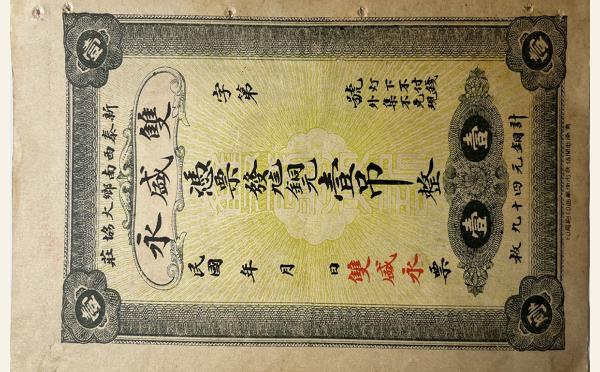 新泰西南鄉大協莊
雙盛永
字第 號
灯下不付錢
外集不兌現
憑票發銅元壹吊整
民國 年 月 日 雙盛永票
計銅元四十九枚
壹
壹
壹
壹
壹
壹